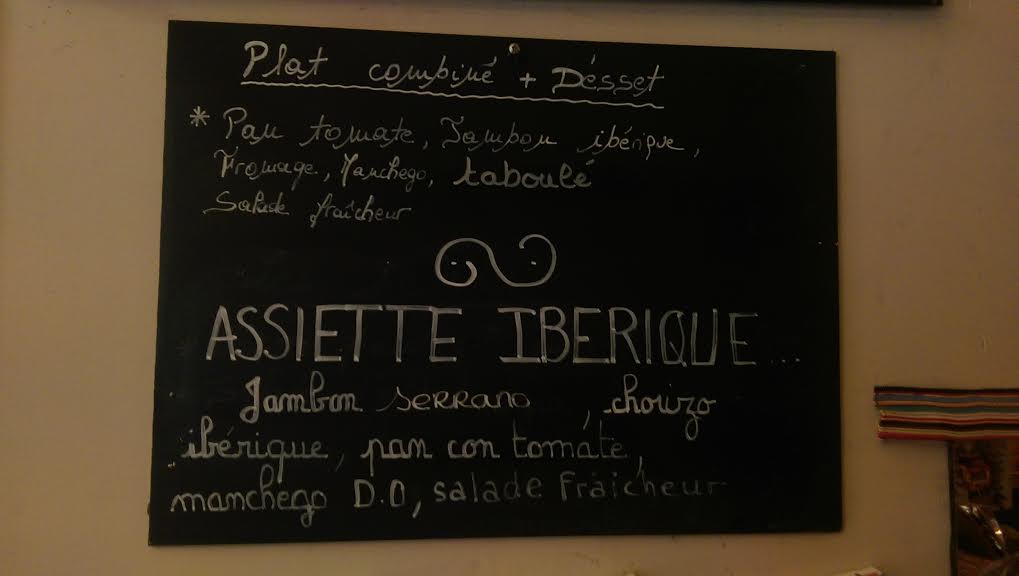 Plat combiné + Désset
* Pan tomate, Jambon ibérique,
Fromage, Manchego, taboulé
Salade fraîcheur
ASSIETTE IBERIQUE...
Jambon SERRANO, chorizo
ibérique, pan con tomate,
manchego D.O, salade fraîcheur